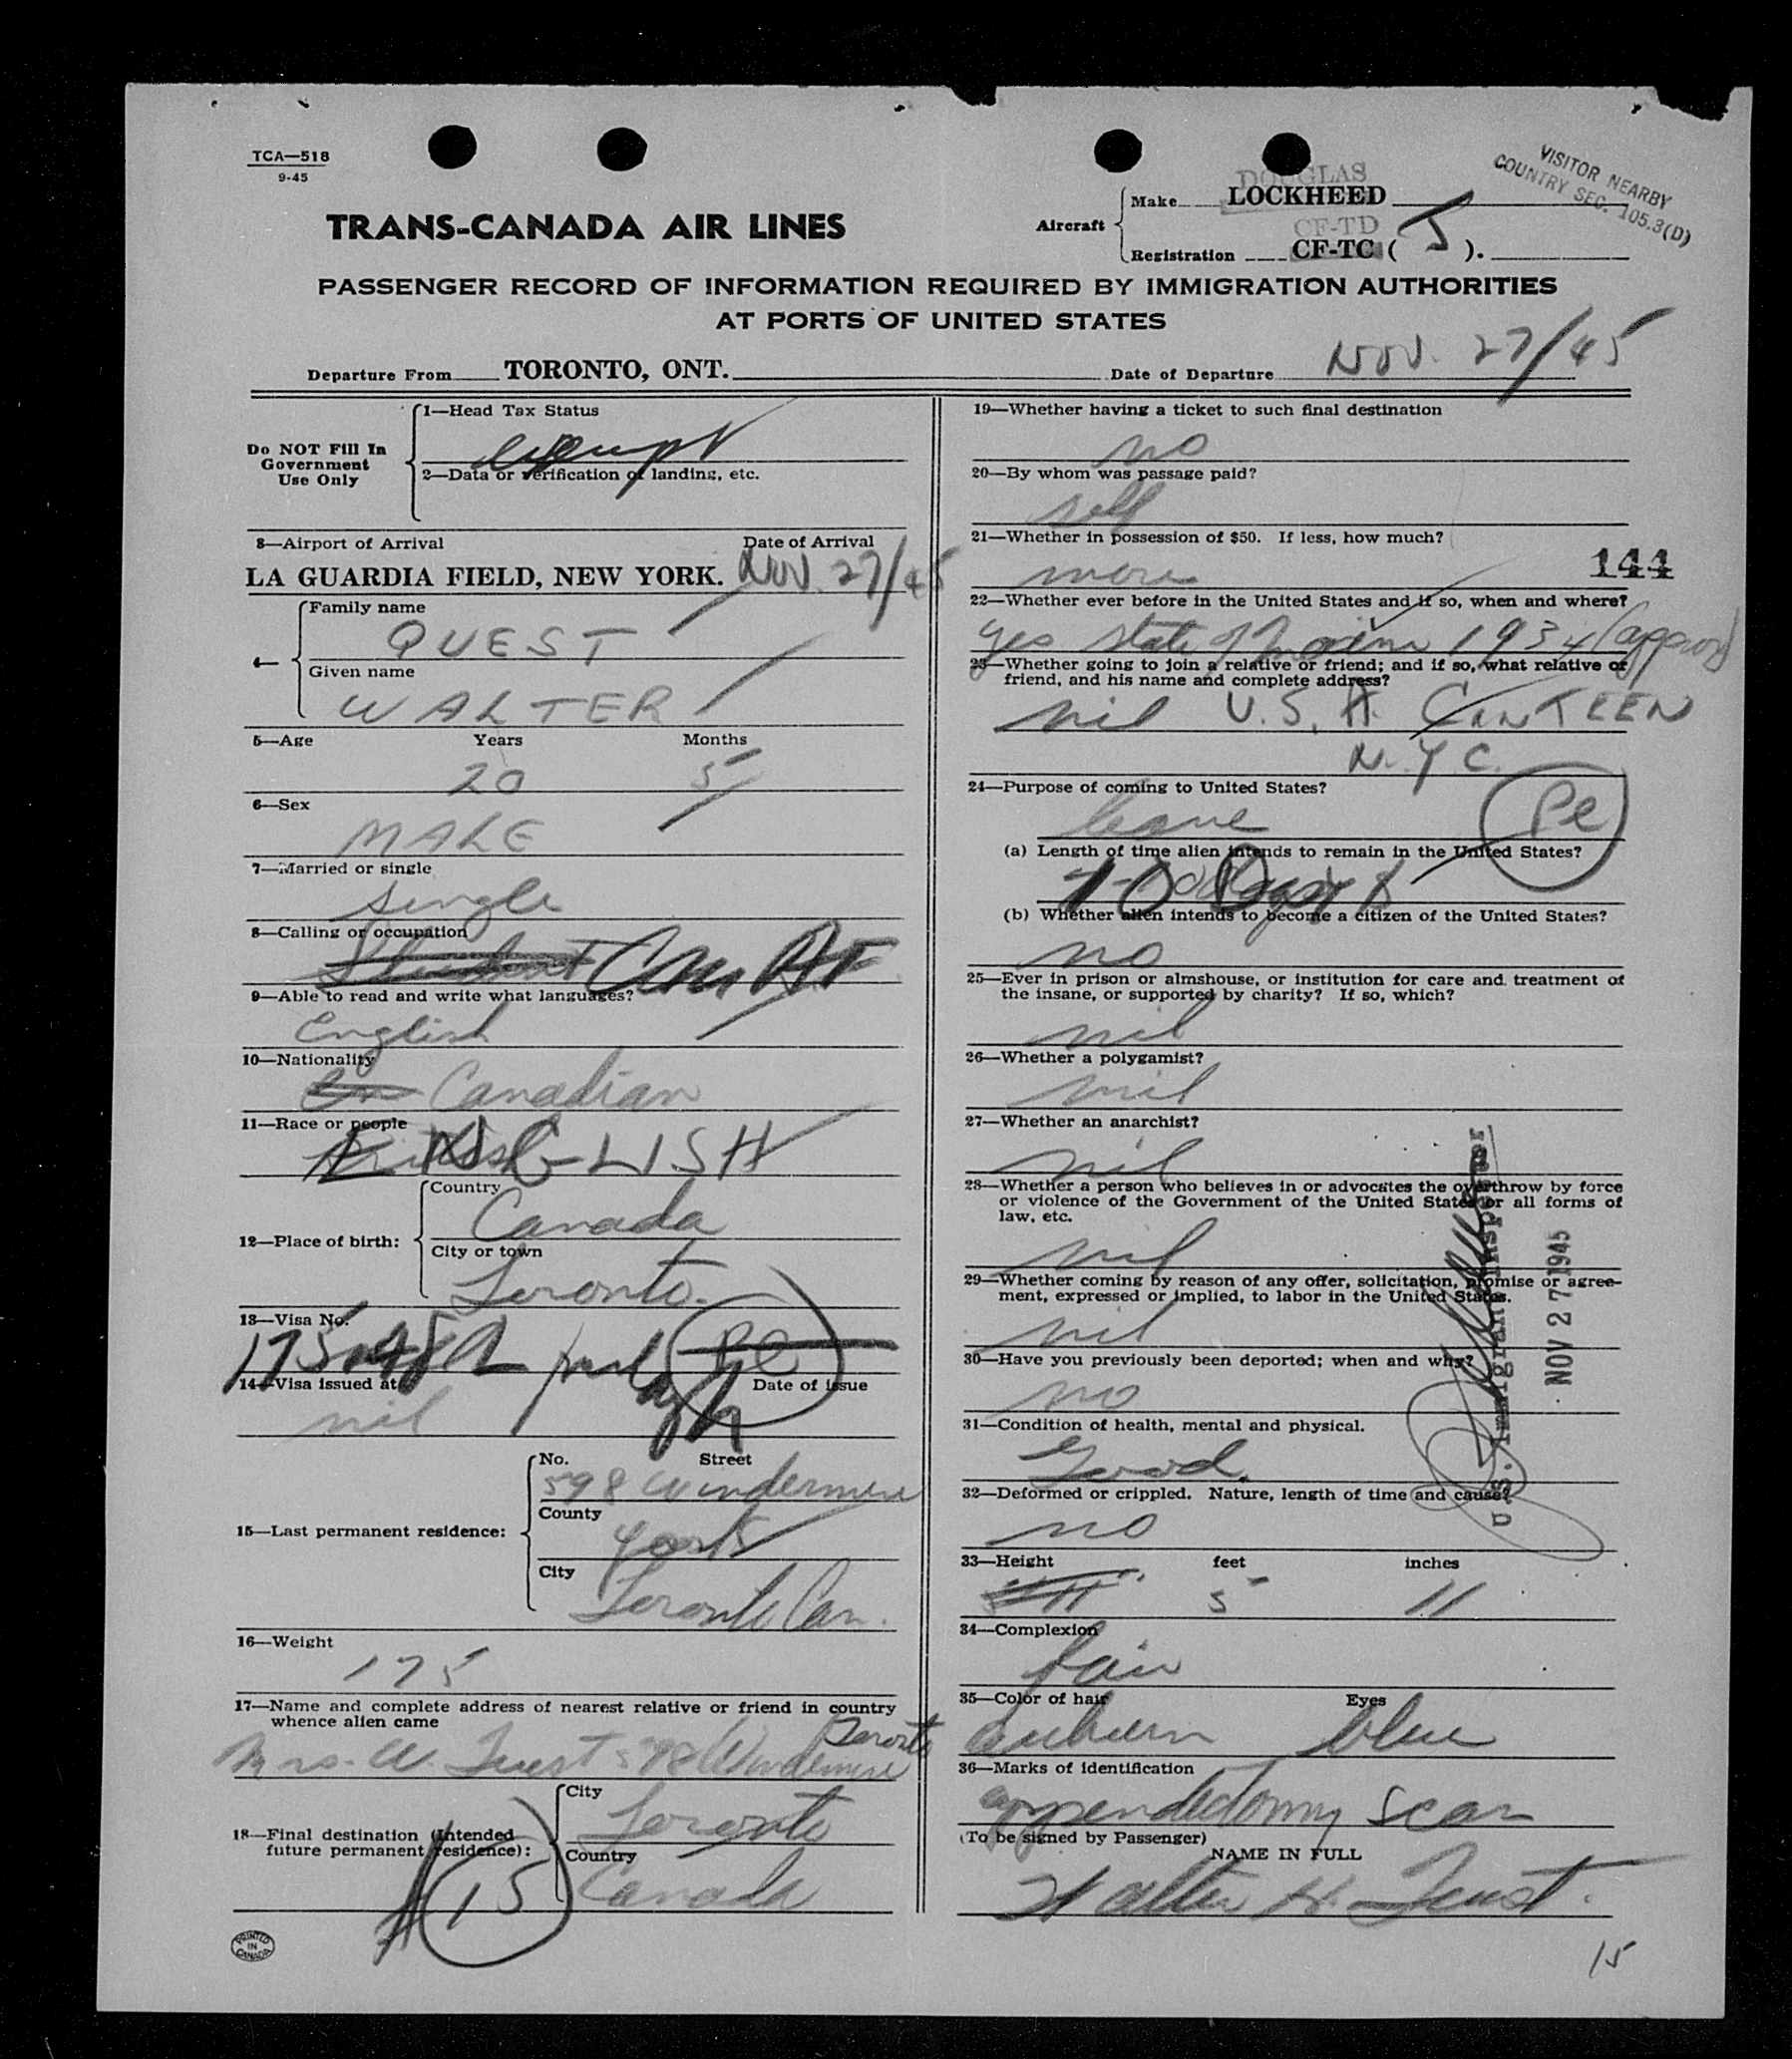 TCA—518
9-45
TRANS-CANADA AIR LINES
Aircraft
Make DOUGLAS LOCKHEED
Registration CF-TD CF-TC ( J ).
VISITOR NEARBY
COUNTRY SEC. 105.3(D)
PASSENGER RECORD OF INFORMATION REQUIRED BY IMMIGRATION AUTHORITIES
AT PORTS OF UNITED STATES
Departure From TORONTO, ONT. Date of Departure Nov. 27/45
Do NOT Fill In
Government
Use Only
1—Head Tax Status
exempt
2—Data or verification of landing, etc.
3—Airport of Arrival Date of Arrival
LA GUARDIA FIELD, NEW YORK. Nov. 27/45
4—
Family name
QUEST
Given name
WALTER
5—Age Years Months
20 5
6—Sex
MALE
7—Married or single
single
8—Calling or occupation
Student
9—Able to read and write what languages?
English
10—Nationality
Canadian
11—Race or people
ENGLISH
12—Place of birth:
Country
Canada
City or town
Toronto.
13—Visa No.
14—Visa issued at Date of issue
nil
15—Last permanent residence:
No. Street
598 Windermere
County
York
City
Toronto Can.
16—Weight
175
17—Name and complete address of nearest relative or friend in country
whence alien came
Mrs. W. Quest 598 Windermere Toronto
18—Final destination (Intended
future permanent residence):
City
Toronto
Country
Canada
15
PRINTED
IN
CANADA
19—Whether having a ticket to such final destination
no
20—By whom was passage paid?
self
21—Whether in possession of $50. If less, how much?
more
144
22—Whether ever before in the United States and if so, when and where?
yes State of Maine 1934 (approx)
23—Whether going to join a relative or friend; and if so, what relative or
friend, and his name and complete address?
nil U.S.A. CANTEEN
N.Y C.
24—Purpose of coming to United States?
leave
Pl
(a) Length of time alien intends to remain in the United States?
10 Days
(b) Whether alien intends to become a citizen of the United States?
no
25—Ever in prison or almshouse, or institution for care and treatment of
the insane, or supported by charity? If so, which?
nil
26—Whether a polygamist?
nil
27—Whether an anarchist?
nil
28—Whether a person who believes in or advocates the overthrow by force
or violence of the Government of the United States or all forms of
law, etc.
nil
29—Whether coming by reason of any offer, solicitation, promise or agree-
ment, expressed or implied, to labor in the United States.
nil
30—Have you previously been deported; when and why?
no
31—Condition of health, mental and physical.
Good.
32—Deformed or crippled. Nature, length of time and cause?
no
U.S. Immigrant Inspector
NOV 27 1945
33—Height feet inches
5 11
34—Complexion
fair
35—Color of hair Eyes
auburn blue
36—Marks of identification
appendectomy scar
(To be signed by Passenger)
NAME IN FULL
Walter H. Quest.
15